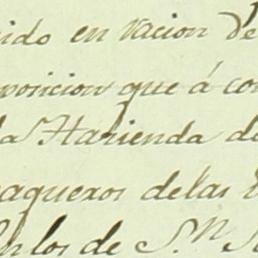 ido en racion de
posicion que á con
la Hazienda de
aqueros de las
los de S.ⁿ